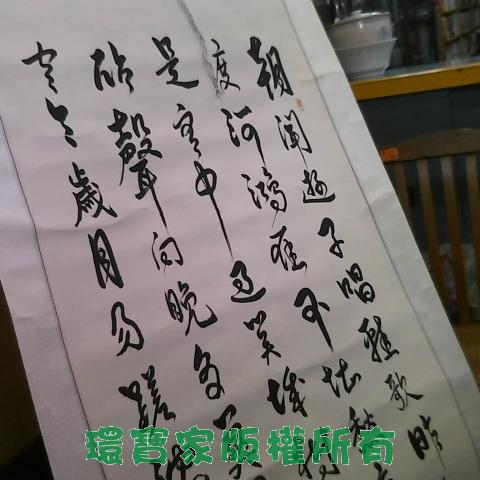 朝聞遊子唱離歌昨
度河鴻雁不堪愁
是客中過關城
砧聲向晚多莫
空令歲月易蹉跎
環寶家版權所有